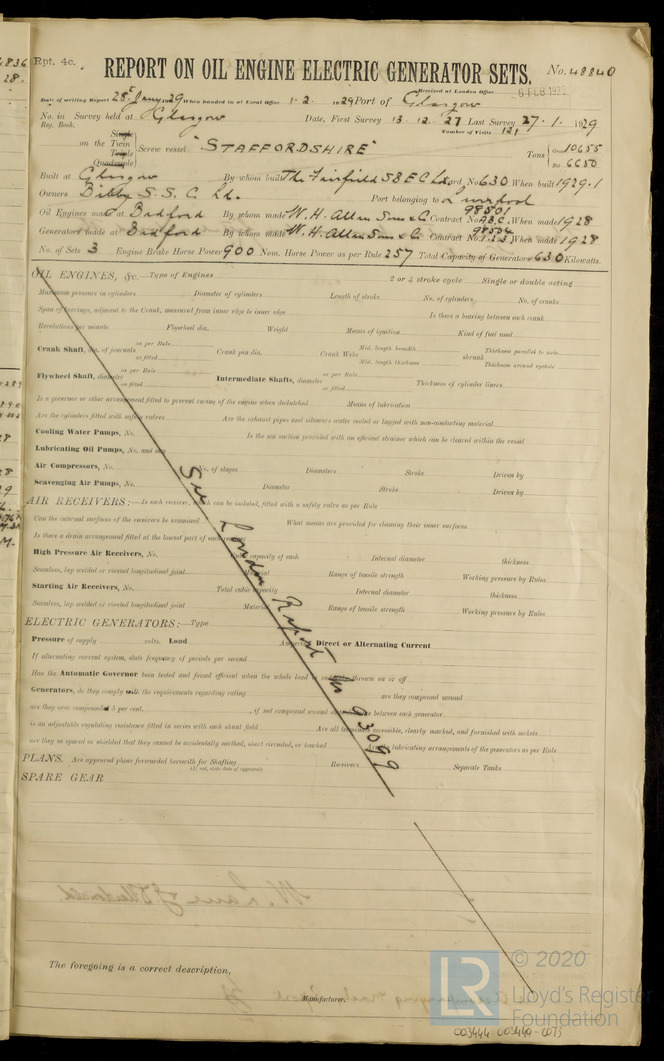 Rpt. 4c.
REPORT ON OIL ENGINE ELECTRIC GENERATOR SETS.
No. 48840
Received at London Office
Date of writing Report 28th Jany 1929 When handed in at Local Office 1. 2. 1929 Port of Glasgow
No. in Reg. Book. Survey held at Glasgow Date, First Survey 13. 12. 27 Last Survey 27. 1. 1929
Number of Visits 121
on the Single Twin Triple Quadruple Screw vessel "STAFFORDSHIRE" Tons Gross 10655 Net 6650
Built at Glasgow By whom built The Fairfield S B E C Ld. Yard No. 630 When built 1929.1
Owners Bibby S. S. C. Ld. Port belonging to Liverpool
Oil Engines made at Bedford By whom made W. H. Allen Sons & C. Contract No. 98501 A.B.C. When made 1928
Generators made at Bedford By whom made W. H. Allen Sons & C. Contract No. 98504 1.2.3. When made 1928
No. of Sets 3 Engine Brake Horse Power 900 Nom. Horse Power as per Rule 257 Total Capacity of Generators 630 Kilowatts.
OIL ENGINES, &c.—Type of Engines 2 or 4 stroke cycle Single or double acting
Maximum pressure in cylinders Diameter of cylinders Length of stroke No. of cylinders No. of cranks
Span of bearings, adjacent to the Crank, measured from inner edge to inner edge Is there a bearing between each crank
Revolutions per minute Flywheel dia. Weight Means of ignition Kind of fuel used
Crank Shaft, dia. of journals as per Rule as fitted Crank pin dia. Crank Webs Mid. length breadth Mid. length thickness shrunk Thickness parallel to axis Thickness around eyehole
Flywheel Shaft, diameter as per Rule as fitted Intermediate Shafts, diameter as per Rule as fitted Thickness of cylinder liners
Is a governor or other arrangement fitted to prevent racing of the engine when declutched Means of lubrication
Are the cylinders fitted with safety valves Are the exhaust pipes and silencers water cooled or lagged with non-conducting material
Cooling Water Pumps, No. Is the sea suction provided with an efficient strainer which can be cleared within the vessel
Lubricating Oil Pumps, No. and size
Air Compressors, No. No. of stages Diameters Stroke Driven by
Scavenging Air Pumps, No. Diameter Stroke Driven by
AIR RECEIVERS:—Is each receiver, which can be isolated, fitted with a safety valve as per Rule
Can the internal surfaces of the receivers be examined What means are provided for cleaning their inner surfaces
Is there a drain arrangement fitted at the lowest part of each receiver
High Pressure Air Receivers, No. Cubic capacity of each Internal diameter thickness
Seamless, lap welded or riveted longitudinal joint Material Range of tensile strength Working pressure by Rules
Starting Air Receivers, No. Total cubic capacity Internal diameter thickness
Seamless, lap welded or riveted longitudinal joint Material Range of tensile strength Working pressure by Rules
ELECTRIC GENERATORS:—Type
Pressure of supply volts. Load Amperes Direct or Alternating Current
If alternating current system, state frequency of periods per second
Has the Automatic Governor been tested and found efficient when the whole load is suddenly thrown on or off
Generators, do they comply with the requirements regarding rating are they compound wound
are they over compounded 5 per cent. , if not compound wound state between each generator
is an adjustable regulating resistance fitted in series with each shunt field Are all terminals accessible, clearly marked, and furnished with sockets
are they so spaced or shielded that they cannot be accidentally earthed, short circuited, or touched Are the lubricating arrangements of the generators as per Rule
PLANS. Are approved plans forwarded herewith for Shafting Receivers Separate Tanks
(If not, state date of approval)
SPARE GEAR
See London Report No 93099
The foregoing is a correct description,
Manufacturer.
LR © 2020
Lloyd's Register
Foundation
003444-003449-0073